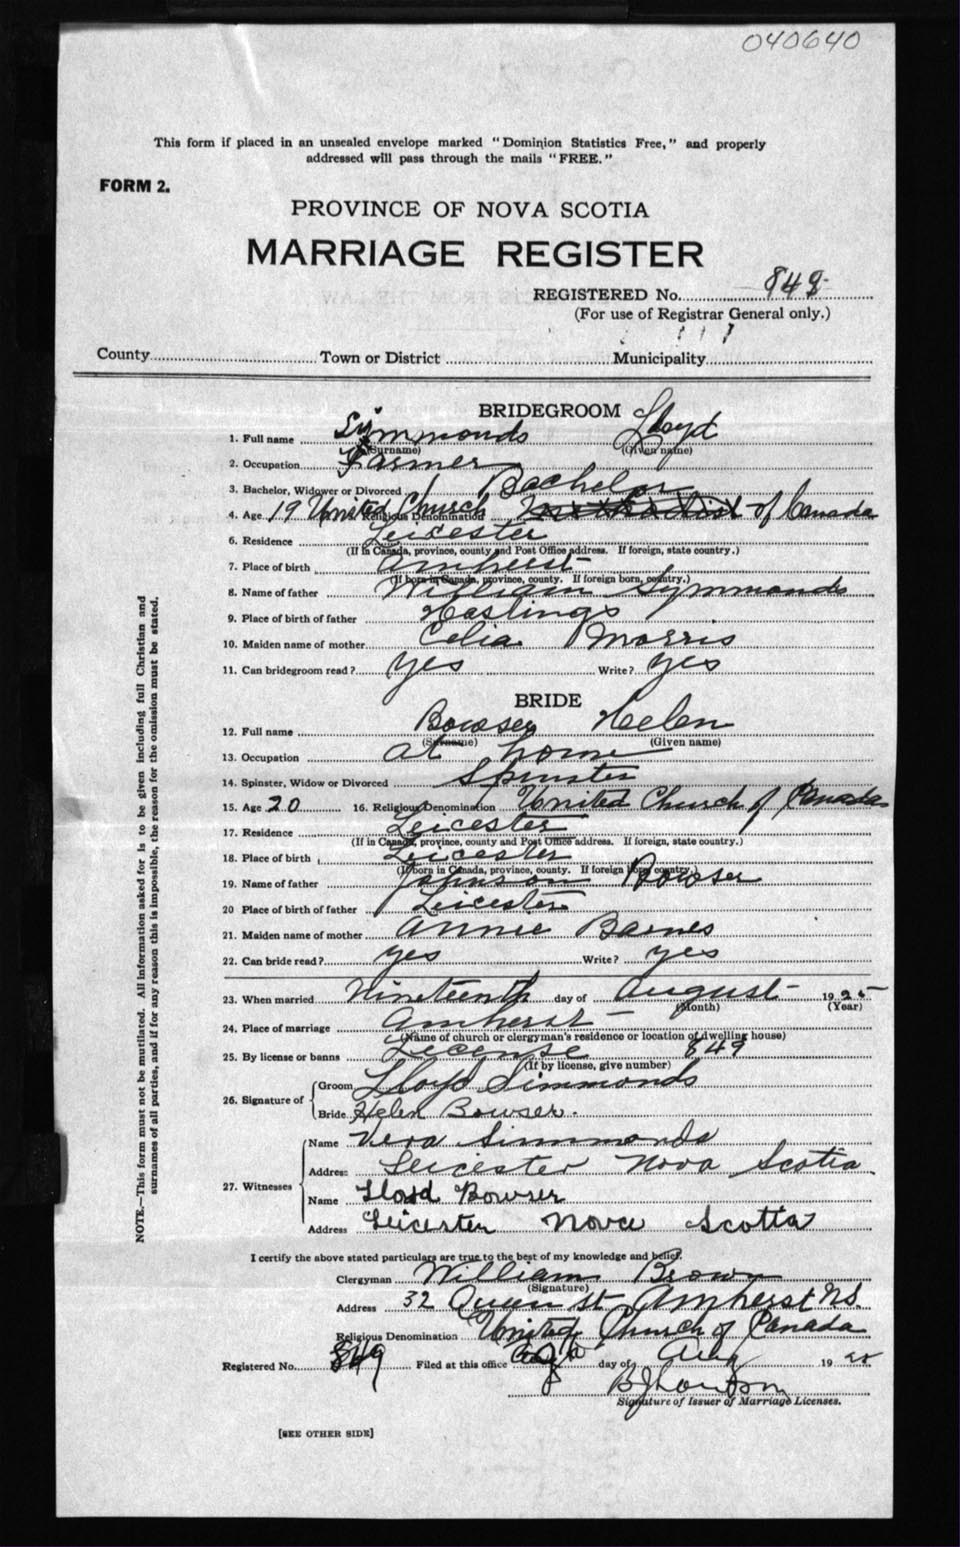 040640
This form if placed in an unsealed envelope marked "Dominion Statistics Free," and properly
addressed will pass through the mails "FREE."
FORM 2.
PROVINCE OF NOVA SCOTIA
MARRIAGE REGISTER
REGISTERED No. 849
(For use of Registrar General only.)
County Town or District Municipality
BRIDEGROOM
1. Full name Symmonds Lloyd
(Surname) (Given name)
2. Occupation Farmer
3. Bachelor, Widower or Divorced Bachelor
4. Age 19 United Church Religious Denomination Methodist of Canada
6. Residence Leicester
(If in Canada, province, county and Post Office address. If foreign, state country.)
7. Place of birth Amherst
(If born in Canada, province, county. If foreign born, country.)
8. Name of father William Symmonds
9. Place of birth of father Hastings
10. Maiden name of mother Celia Morris
11. Can bridegroom read? yes Write? yes
BRIDE
12. Full name Bowser Helen
(Surname) (Given name)
13. Occupation at home
14. Spinster, Widow or Divorced Spinster
15. Age 20 16. Religious Denomination United Church of Canada
17. Residence Leicester
(If in Canada, province, county and Post Office address. If foreign, state country.)
18. Place of birth Leicester
(If born in Canada, province, county. If foreign born, country.)
19. Name of father Johnson Bowser
20 Place of birth of father Leicester
21. Maiden name of mother Annie Barnes
22. Can bride read? yes Write? yes
23. When married Nineteenth day of August 1925
(Month) (Year)
24. Place of marriage Amherst
(Name of church or clergyman's residence or location of dwelling house)
25. By license or banns License 849
(If by license, give number)
26. Signature of Groom Lloyd Simmonds
Bride Helen Bowser.
27. Witnesses Name Vera Simmonds
Address Leicester Nova Scotia
Name Lloyd Bowser
Address Leicester Nova Scotia
I certify the above stated particulars are true to the best of my knowledge and belief.
Clergyman William Brown
(Signature)
Address 32 Queen St Amherst N.S.
Religious Denomination United Church of Canada
Registered No. 849 Filed at this office day of Aug 1925
Signature of Issuer of Marriage Licenses.
[SEE OTHER SIDE]
NOTE.—This form must not be mutilated. All information asked for is to be given including full Christian and
surnames of all parties, and if for any reason this is impossible, the reason for the omission must be stated.